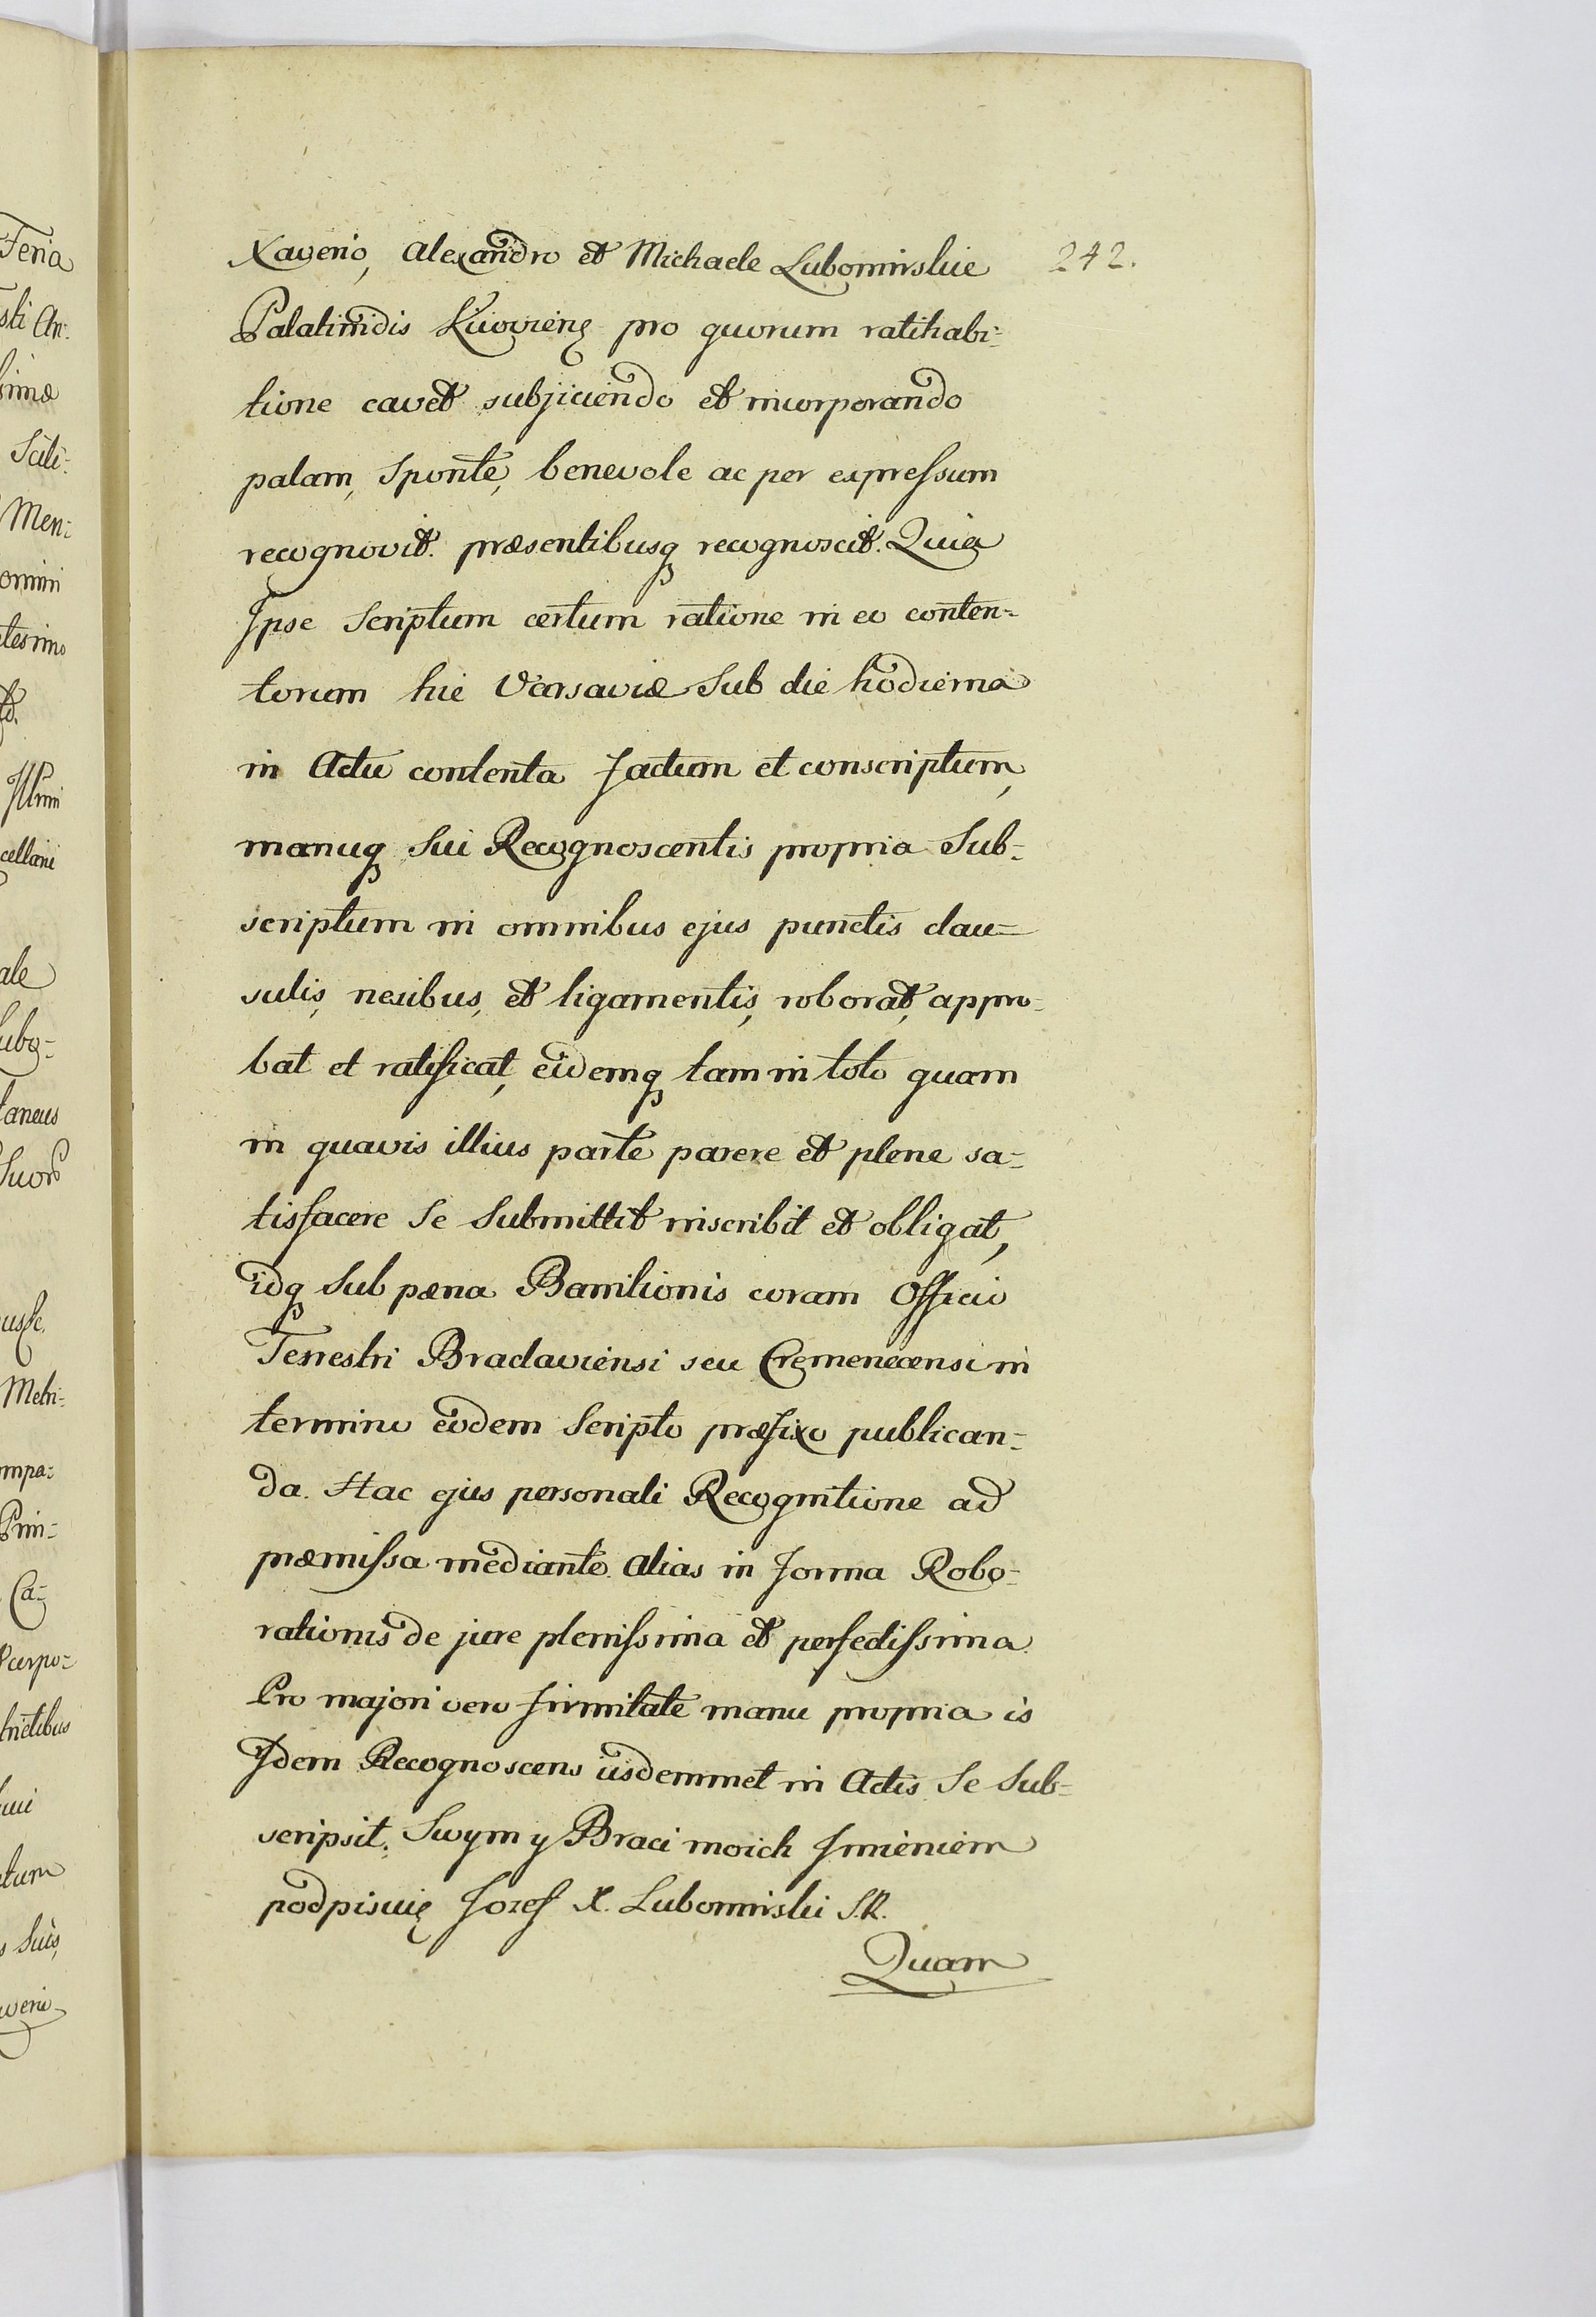 Xaverio, Alexandro et Michaele Lubomirskie 242.
Palatinidis Kiiovienȩ pro quorum ratihabi=
tione cavet subjiciendo et incorporando
palam, sponte, benevole ac per expressum
recognovit. præsentibusq recognoscit. Quia
Ipse Scriptum certum ratione in eo conten=
torum hic Varsaviæ Sub die hodierna
in Actu contenta factum et conscriptum,
manuq Sui Recognoscentis propria Sub=
scriptum in omnibus ejus punctis clau=
sulis, nexibus, et ligamentis, roborat, appro=
bat et ratificat, eidemq tam in toto quam
in quavis illius parte parere et plene sa=
tisfacere Se Submittit inscribit et obligat,
idq Sub pæna Bannitionis coram Officio
Terrestri Braclaviensi seu Cremenecensi in
termino eodem Scripto præfixo publican=
da. Hac ejus personali Recognitione ad
præmissa mediante. Alias in forma Robo=
rationis de jure plenissima et perfectissima.
Pro majori vero firmitate manu propria is
Idem Recognoscens iisdemmet in Actis Se Sub=
scripsit. Swym y Braci moich Imieniem
podpisuię Jozef X. Lubomirski S.R.
Quam
Feria
sti An:
simæ
Men:
omini
Illmi
cellani
ale
Lubo=
taneus
Metri=
ompa=
Prin=
Ca=
trictibus
Suis,